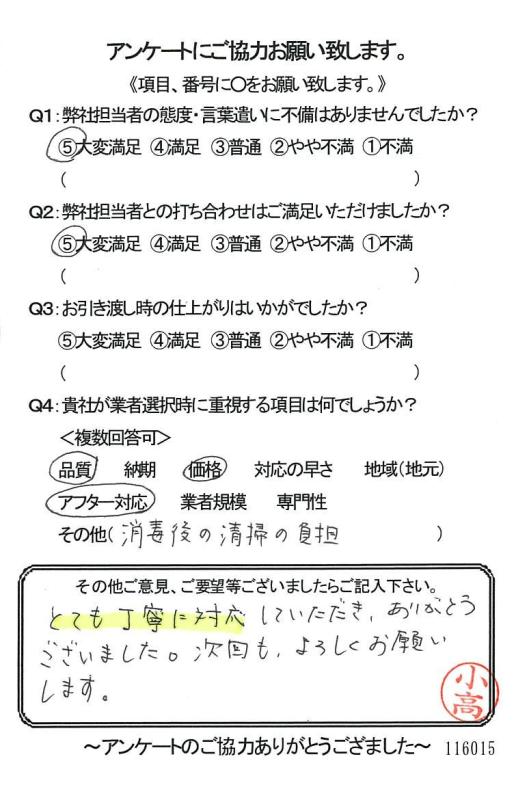 アンケートにご協力お願い致します。
《項目、番号に〇をお願い致します。》
Q1:弊社担当者の態度・言葉遣いに不備はありませんでしたか?
⑤大変満足 ④満足 ③普通 ②やや不満 ①不満
( )
Q2:弊社担当者との打ち合わせはご満足いただけましたか?
⑤大変満足 ④満足 ③普通 ②やや不満 ①不満
( )
Q3:お引き渡し時の仕上がりはいかがでしたか?
⑤大変満足 ④満足 ③普通 ②やや不満 ①不満
( )
Q4:貴社が業者選択時に重視する項目は何でしょうか?
<複数回答可>
品質 納期 価格 対応の早さ 地域(地元)
アフター対応 業者規模 専門性
その他(消毒後の清掃の負担 )
その他ご意見、ご要望等ございましたらご記入下さい。
とても丁寧に対応していただき、ありがとう
ございました。次回も、よろしくお願い
します。
小高
~アンケートのご協力ありがとうござました~ 116015